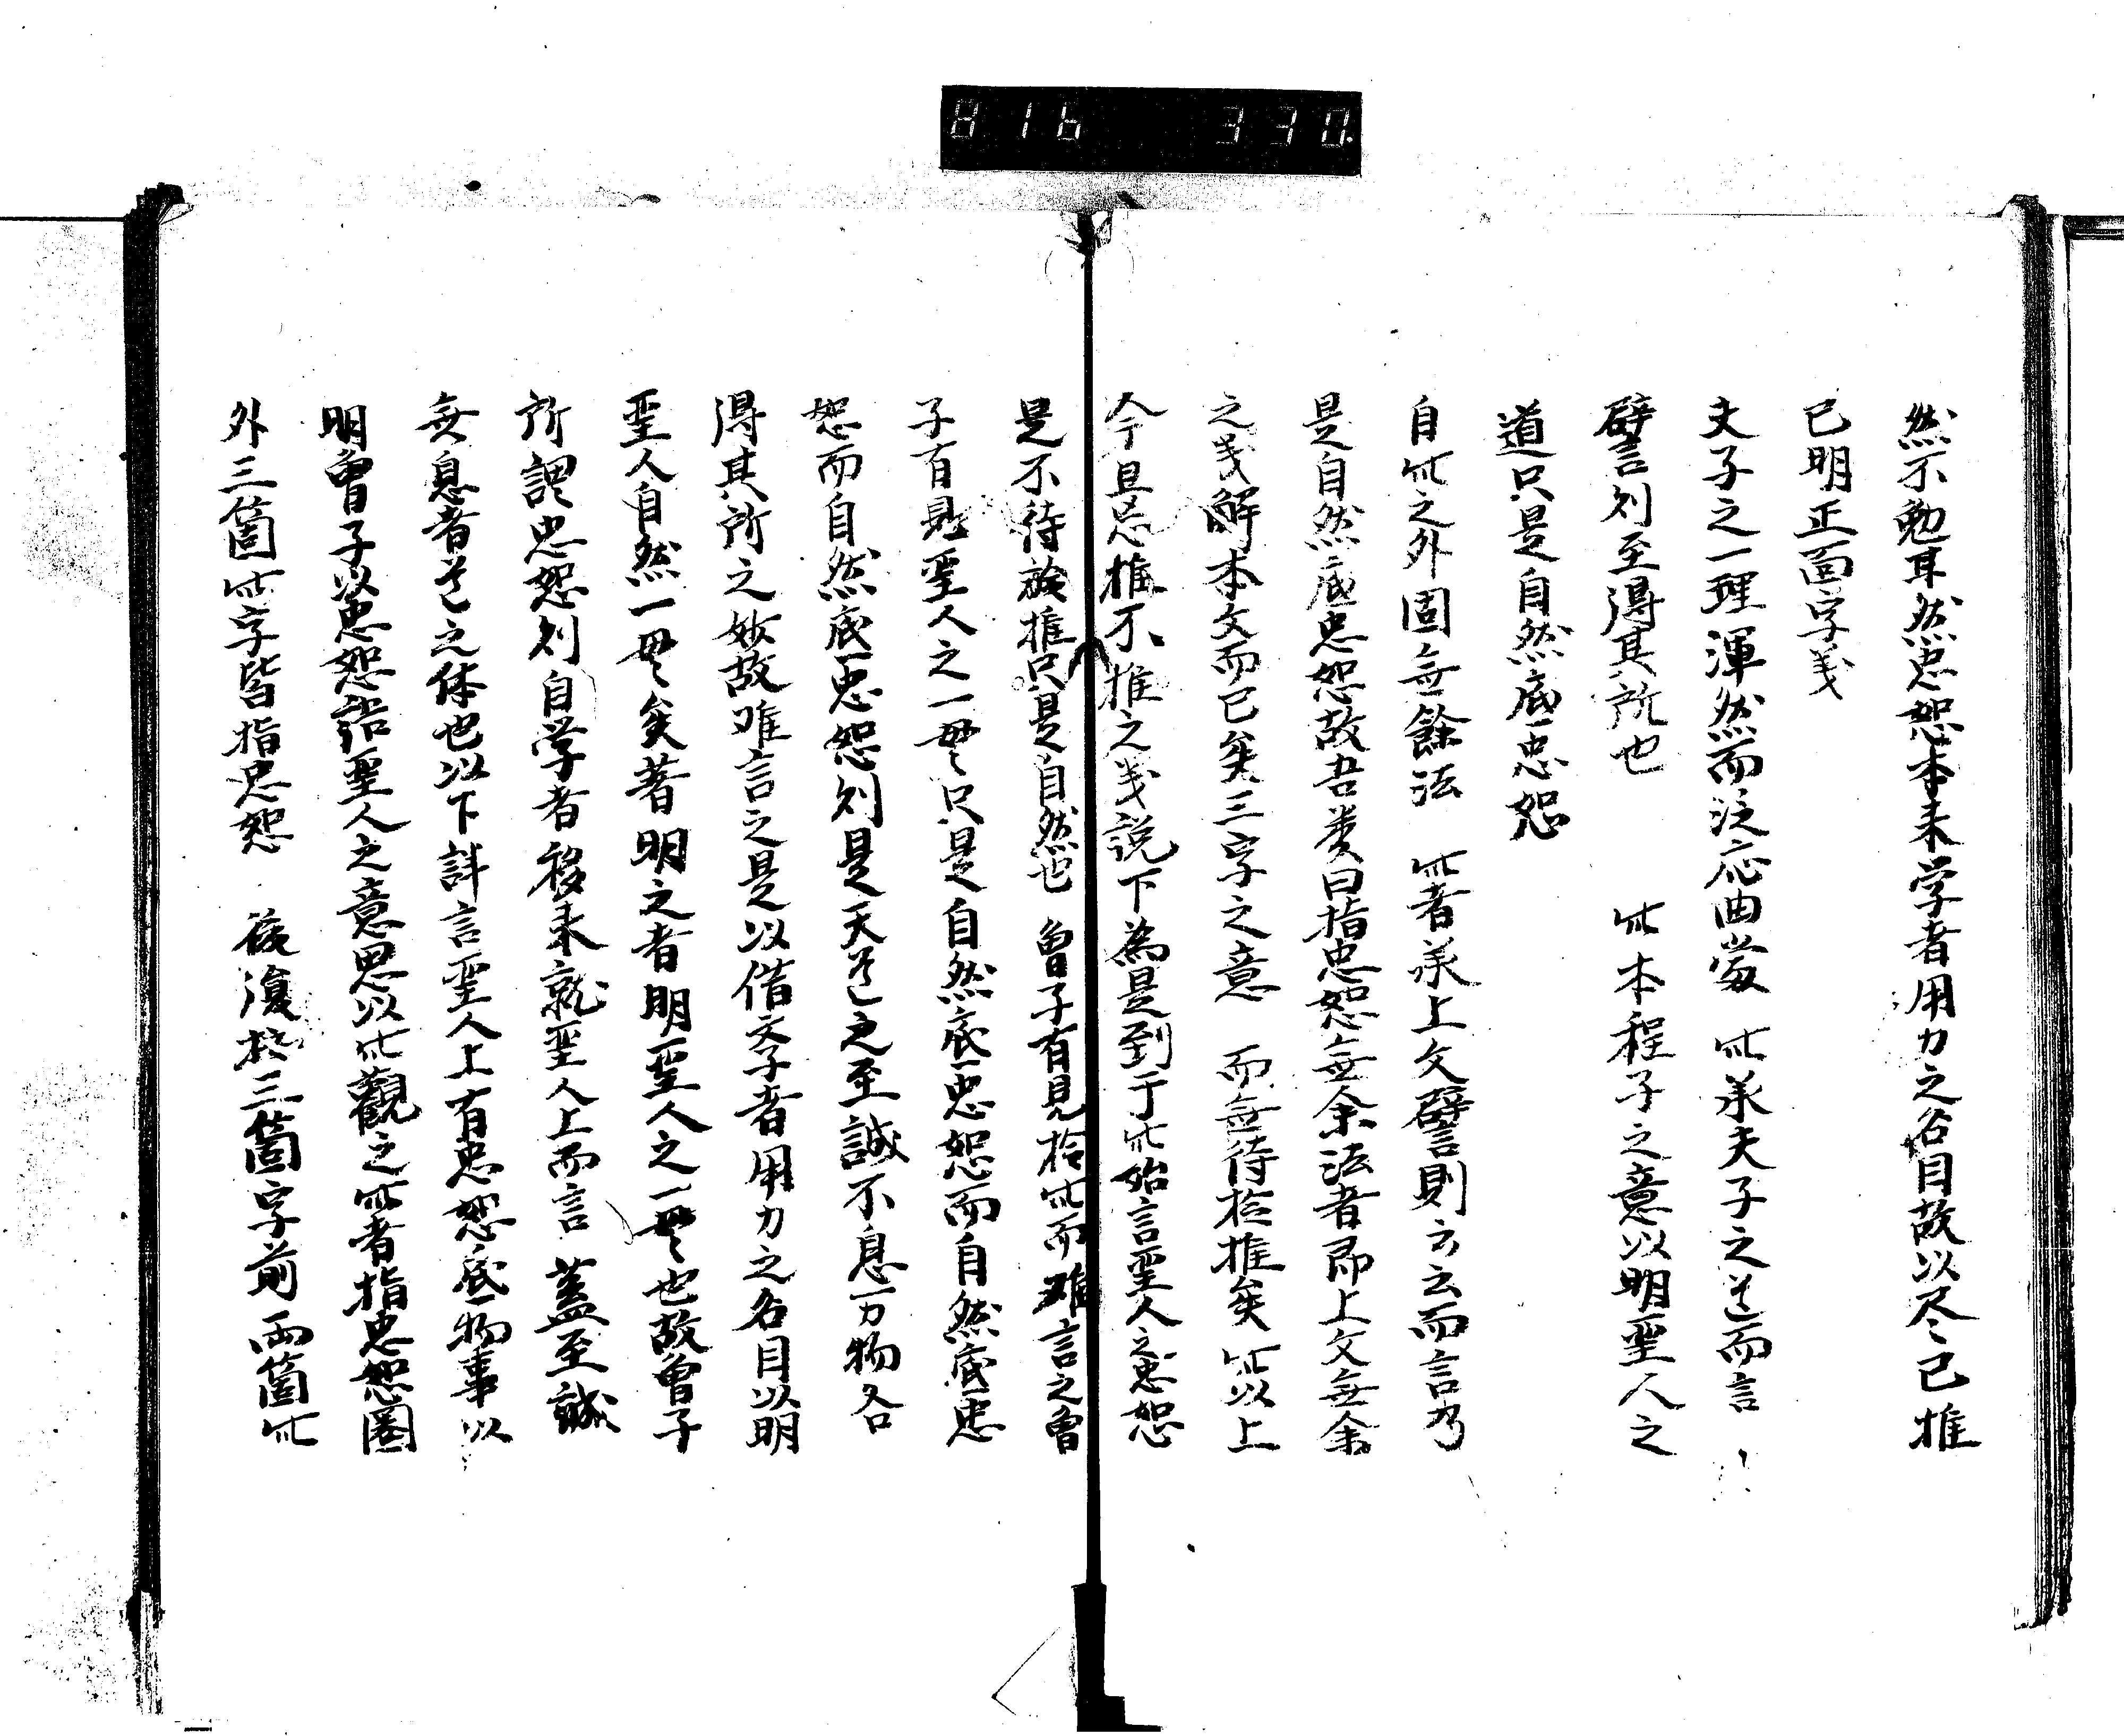 816 330.
然不勉耳然忠恕本来学者用力之名目故以尽己推
己明正面字義
夫子之一理渾然而泛応曲當 此承夫子之道而言
譬則至得其所也 此本程子之意以明聖人之
道只是自然底忠恕
自此之外固無餘法 此者承上文譬言則云云而言乃
是自然底忠恕故吾类曰指忠恕無余法者即上文無余
之義解本文而已矣三字之意 而無待於推矣 此以上
今且忌推不推之義説下為是到于此始言聖人之忠恕
是不待於推只是自然也 曾子有見於此而难言之曾
子有見聖人之一貫只是自然底忠恕而自然底忠
恕而自然底忠恕則是天道之至誠不息万物各
得其所之妙故难言之是以借学者用力之名目以明
聖人自然一貫矣著明之者明聖人之一貫也故曾子
所謂忠恕則自学者移来就聖人上而言 蓋至誠
無息者道之体也以下詳言聖人上有忠恕底物事以
明曾子以忠恕語聖人之意思以此觀之此者指忠恕圏
外三箇此字皆指忠恕 後復於三箇字前両箇此